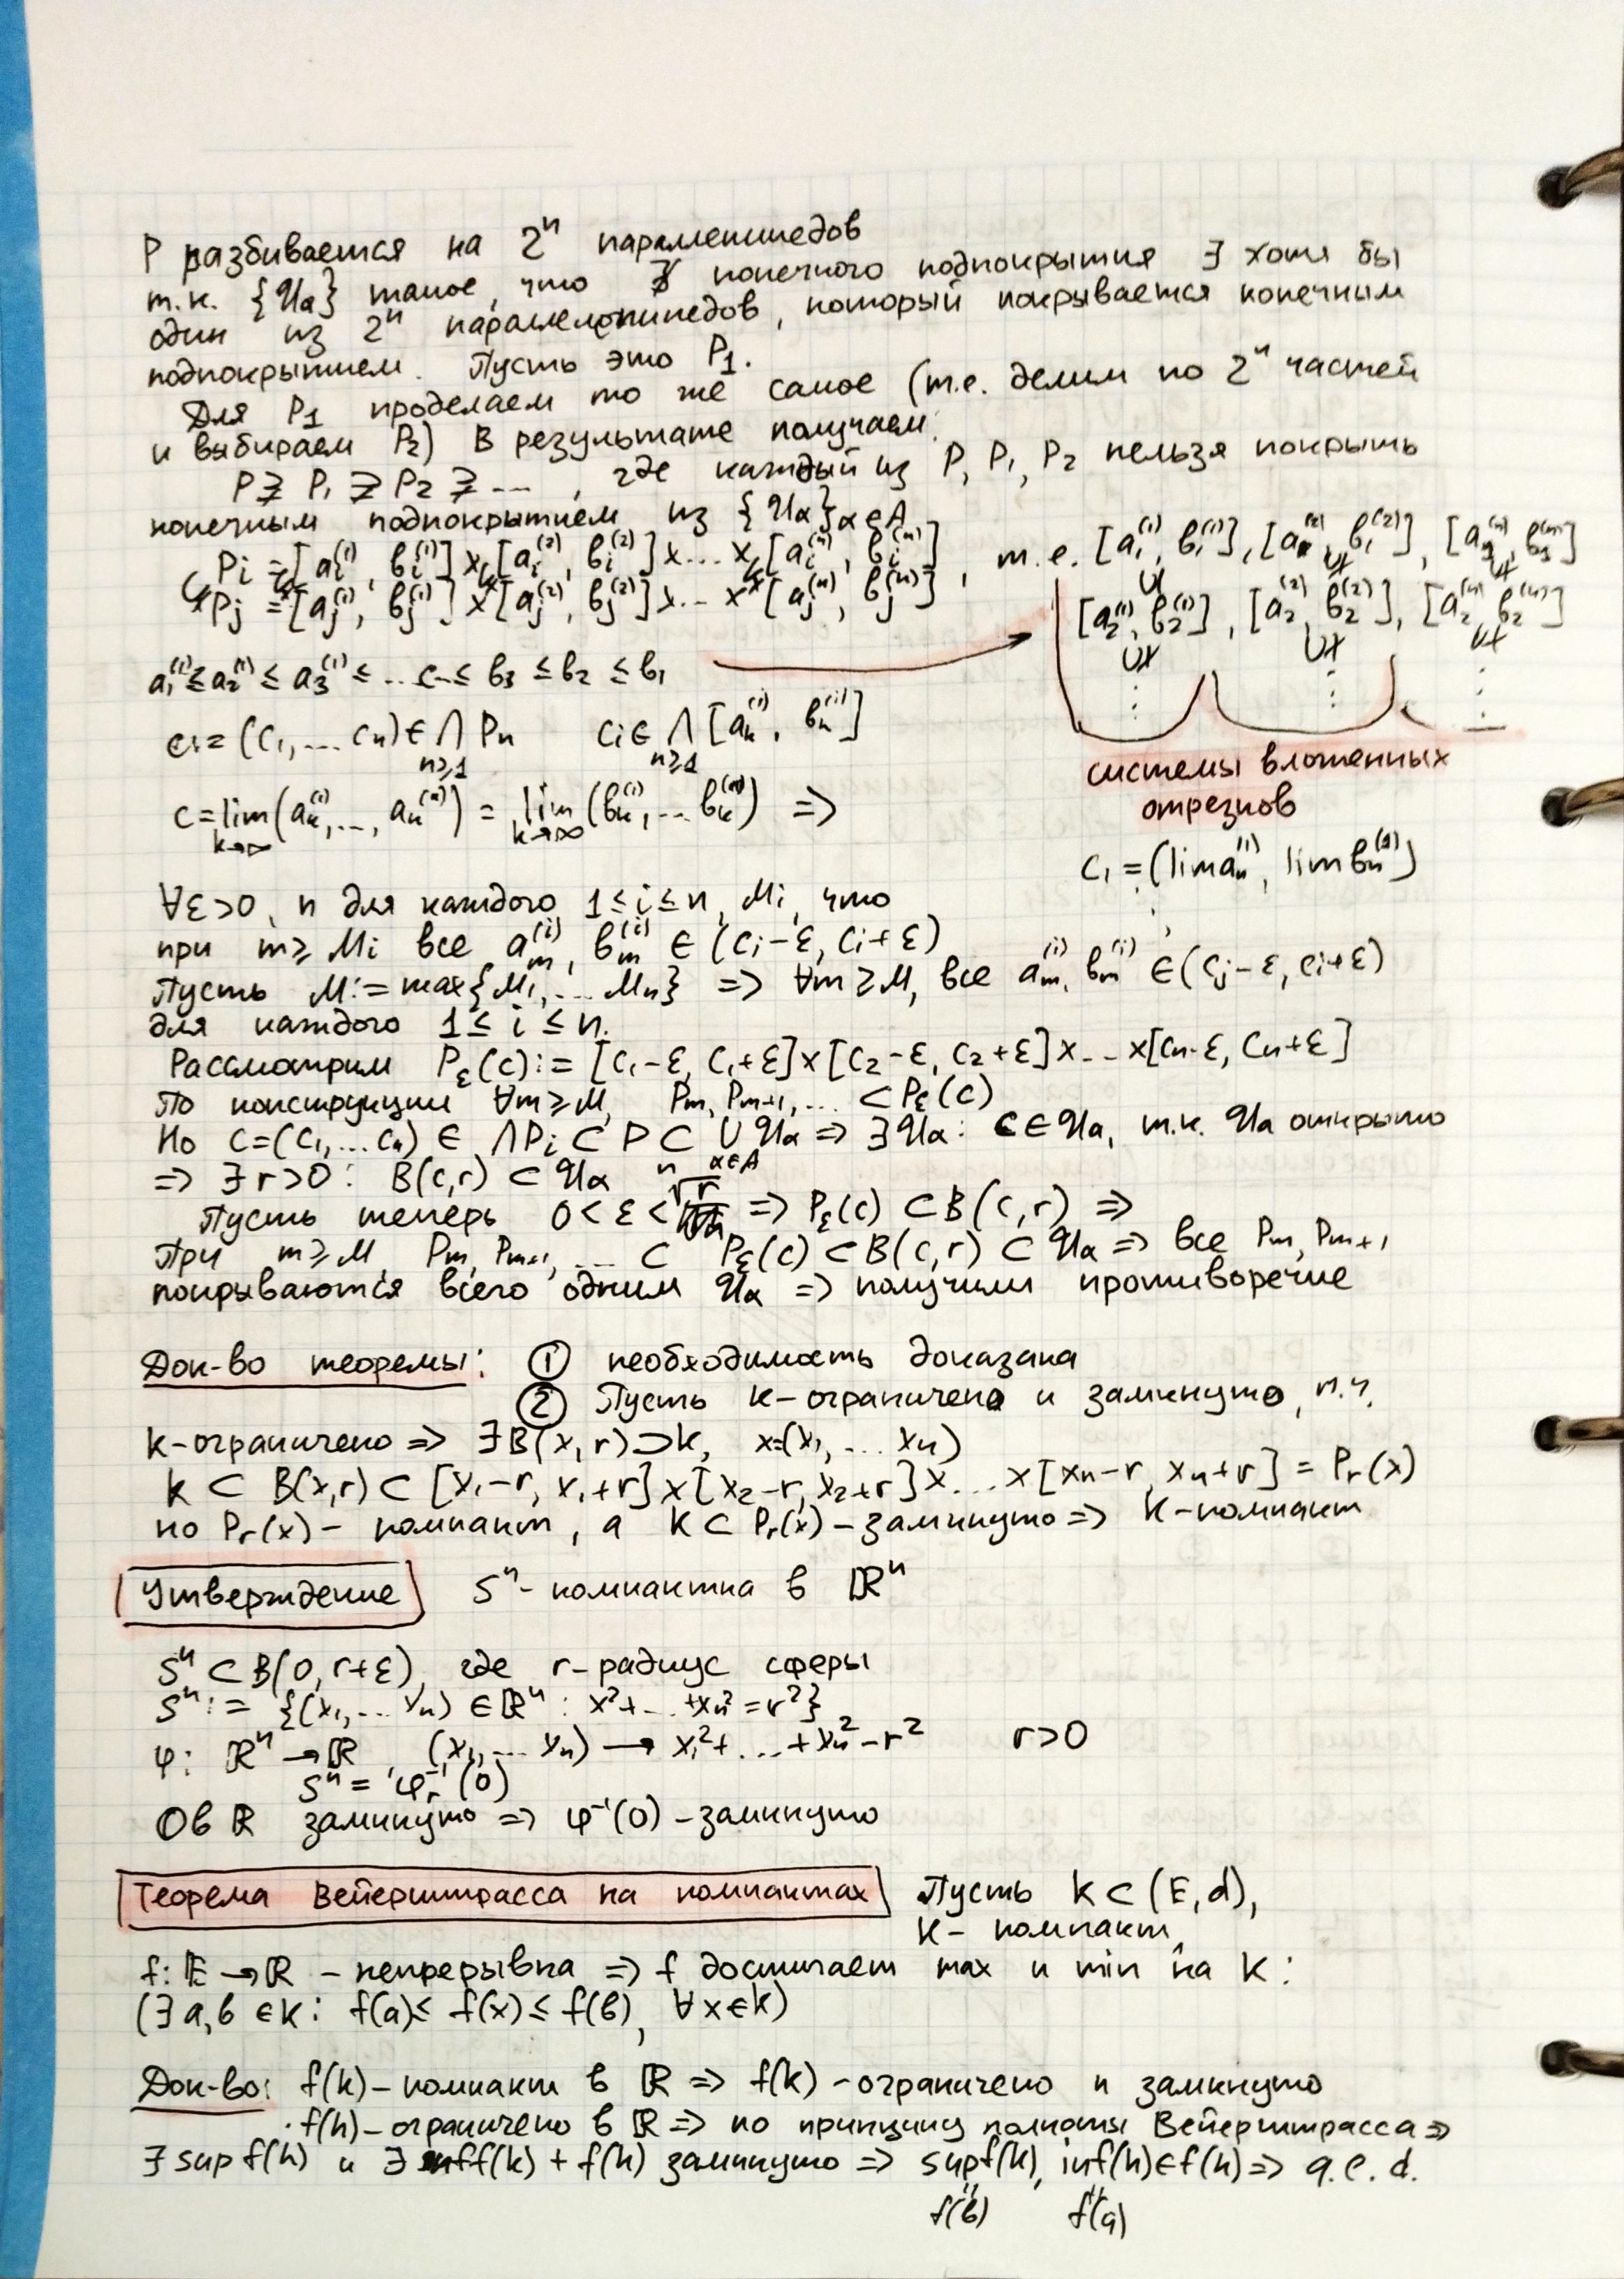 P разбивается на 2ⁿ параллепипедов
т.к. {𝒰α} такое, что ∄ конечного подпокрытия ∃ хотя бы
один из 2ⁿ параллелепипедов, который покрывается конечным
подпокрытием. Пусть это P₁.
Для P₁ проделаем то же самое (т.е. делим по 2ⁿ частей
и выбираем P₂) В результате получаем:
P ⊋ P₁ ⊋ P₂ ⊋ ..., где каждый из P, P₁, P₂ нельзя покрыть
конечным подпокрытием из {𝒰α}α∈A
Pi = [ai⁽¹⁾, bi⁽¹⁾] × [ai⁽²⁾, bi⁽²⁾] × ... × [ai⁽ⁿ⁾, bi⁽ⁿ⁾], т.е. [a₁⁽¹⁾, b₁⁽¹⁾], [a₁⁽²⁾, b₁⁽²⁾], [a₁⁽ⁿ⁾, b₁⁽ⁿ⁾]
Pj = [aj⁽¹⁾, bj⁽¹⁾] × [aj⁽²⁾, bj⁽²⁾] × ... × [aj⁽ⁿ⁾, bj⁽ⁿ⁾]
[a₂⁽¹⁾, b₂⁽¹⁾], [a₂⁽²⁾, b₂⁽²⁾], [a₂⁽ⁿ⁾, b₂⁽ⁿ⁾]
a₁⁽¹⁾ ≤ a₂⁽¹⁾ ≤ a₃⁽¹⁾ ≤ ... c ... ≤ b₃ ≤ b₂ ≤ b₁
c = (c₁, ... cn) ∈ ⋂ Pn ci ∈ ⋂ [an⁽ⁱ⁾, bn⁽ⁱ⁾]
n≥1 n≥1
системы вложенных
отрезков
c = lim (ak⁽¹⁾, ..., ak⁽ⁿ⁾) = lim (bk⁽¹⁾, ... bk⁽ⁿ⁾) =>
k→∞ k→∞
c₁ = (lim an⁽¹⁾, lim bn⁽¹⁾)
∀ε>0, и для каждого 1 ≤ i ≤ n, Mi, что
при m ≥ Mi все am⁽ⁱ⁾, bm⁽ⁱ⁾ ∈ (ci-ε, ci+ε)
Пусть M := max{M₁, ... Mn} => ∀m ≥ M, все am⁽ⁱ⁾, bm⁽ⁱ⁾ ∈ (ci-ε, ci+ε)
для каждого 1 ≤ i ≤ n.
Рассмотрим Pε(c) := [c₁-ε, c₁+ε] × [c₂-ε, c₂+ε] × ... × [cn-ε, cn+ε]
По конструкции ∀m ≥ M, Pm, Pm+1, ... ⊂ Pε(c)
Но c = (c₁, ... cn) ∈ ⋂Pi ⊂ P ⊂ ⋃ 𝒰α => ∃𝒰α: c ∈ 𝒰α, т.к. 𝒰α открыто
α∈A
=> ∃ r>0: B(c,r) ⊂ 𝒰α
Пусть теперь 0 < ε < => Pε(c) ⊂ B(c,r) =>
При m ≥ M, Pm, Pm+1, ... ⊂ Pε(c) ⊂ B(c,r) ⊂ 𝒰α => все Pm, Pm+1
покрываются всего одним 𝒰α => получили противоречие
Док-во теоремы: ① необходимость доказана
② Пусть K - ограничено и замкнуто,
K-ограничено => ∃B(x,r)⊃K, x=(x₁, ... xn)
K ⊂ B(x,r) ⊂ [x₁-r, x₁+r] × [x₂-r, x₂+r] × ... × [xn-r, xn+r] = Pr(x)
но Pr(x) - компакт, а K ⊂ Pr(x) - замкнуто => K-компакт
Утверждение Sⁿ - компактна в ℝⁿ
Sⁿ ⊂ B(0, r+ε), где r-радиус сферы
Sⁿ := {(x₁, ... xn) ∈ ℝⁿ : x²+ ... +xn² = r²}
φ: ℝⁿ → ℝ, (x₁, ... xn) → x₁²+ ... +xn²-r² r>0
Sⁿ = φr⁻¹(0)
0 в ℝ замкнуто => φ⁻¹(0) - замкнуто
Теорема Вейерштрасса на компактах Пусть K ⊂ (E, d),
K - компакт,
f: E → ℝ - непрерывна => f достигает max и min на K:
(∃ a,b ∈ K: f(a) ≤ f(x) ≤ f(b), ∀x∈K)
Док-во: f(k) - компакт в ℝ => f(k) - ограничено и замкнуто
· f(k) - ограничено в ℝ => по принципу полноты Вейерштрасса =>
∃ sup f(k) и ∃ inf f(k) + f(k) замкнуто => sup f(k), inf f(k) ∈ f(k) => q.e.d.
f(b) f(a)